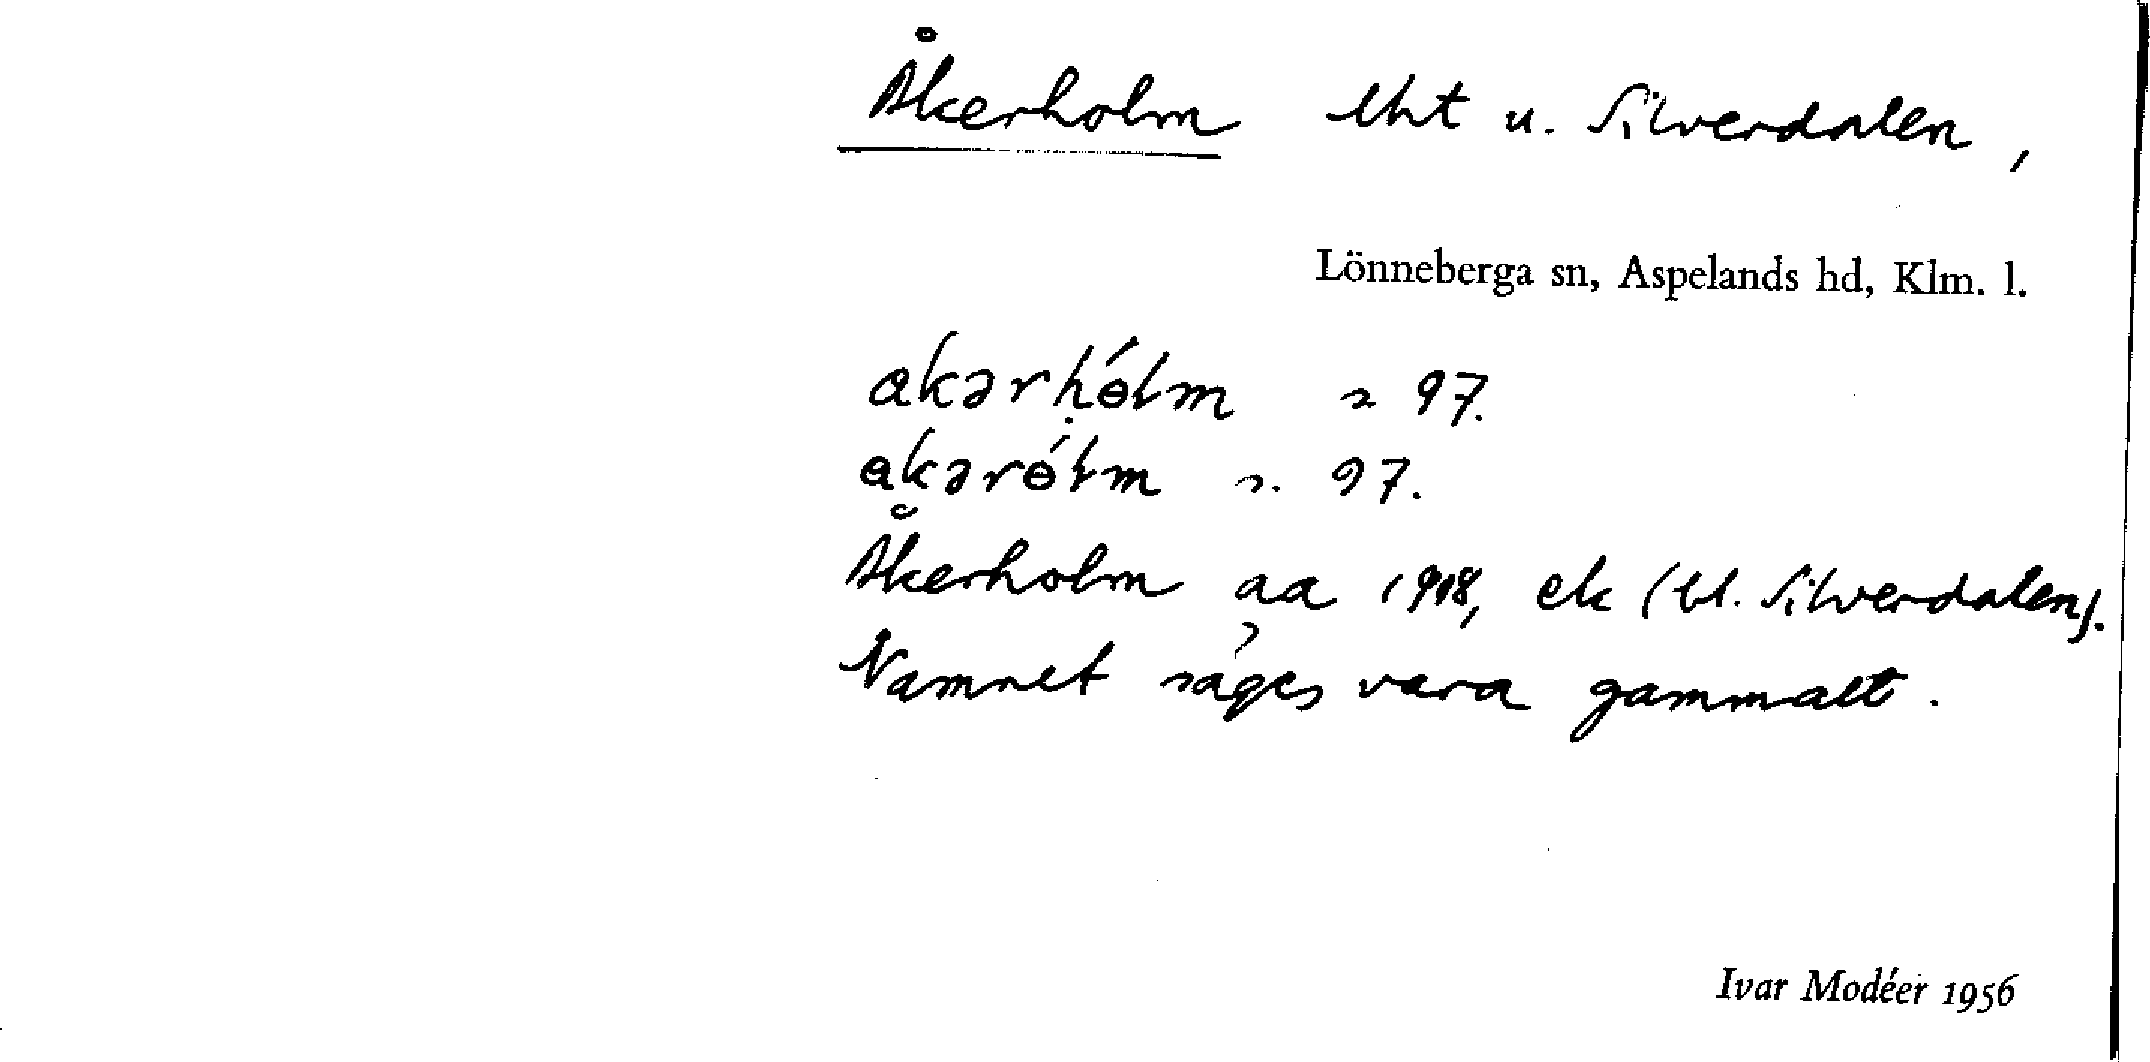 Åkerholm lht u. Silverdalen,
Lönneberga sn, Aspelands hd, Klm. l.
akərḥólm s 97.
akərólm s. 97.
Åkerholm aa 1908, ek (bl. Silverdalen).
Namnet säges vara gammalt.
Ivar Modéer 1956